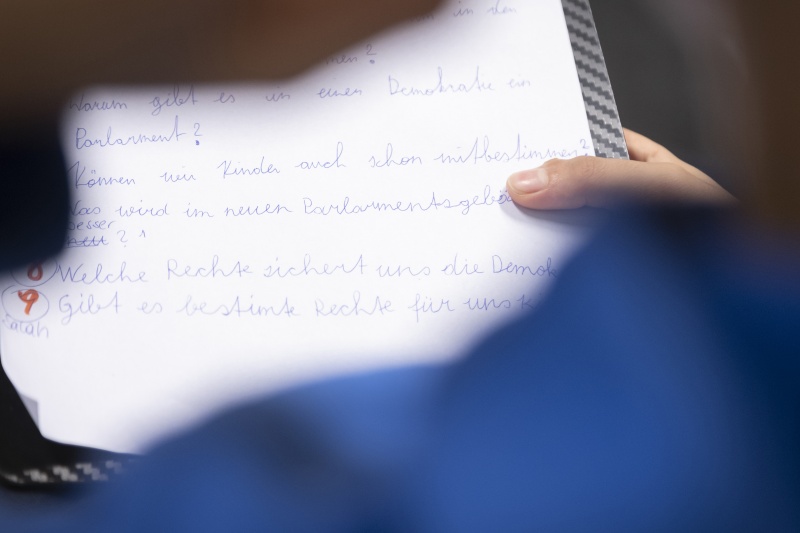 in den
?
Warum gibt es in einer Demokratie ein
Parlarment?
Können wir Kinder auch schon mitbestimmen?
Was wird im neuen Parlarmentsgebä
besser
?
8 Welche Rechte sichert uns die Demok
9 Gibt es bestimte Rechte für uns K
Sarah